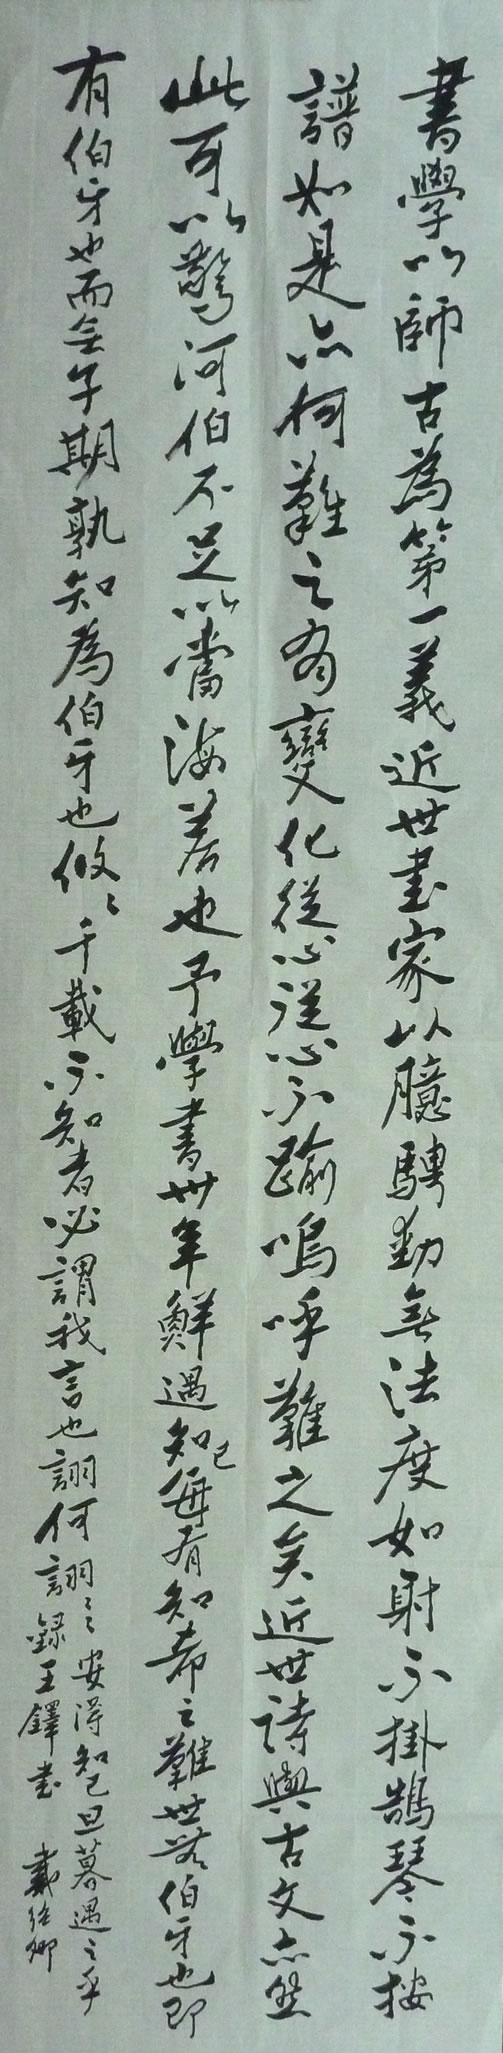 書學以師古為第一義近世書家以臆騁動無法度如射不掛鵠琴不按
譜如是亦何難之有變化從心從心不踰嗚呼難之矣近世詩與古文亦然
此可以驚河伯不足以當海若也予學書卅年鮮遇知己每有知希之難世無伯牙也即
有伯牙也而無子期孰知為伯牙也悠〻千載不知者必謂我言也詡何詡
詡〻之安得知己旦暮遇之乎
錄王鐸書 戴